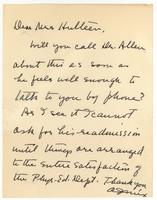 Dear Mrs Hulteen,
Will you call Dr. Allen
about this as soon as
he feels well enough to
talk to you by phone?
As I see it I cannot
ask for his readmission
until things are arranged
to the entire satisfaction
of the Phys. Ed. Dept. Thank you